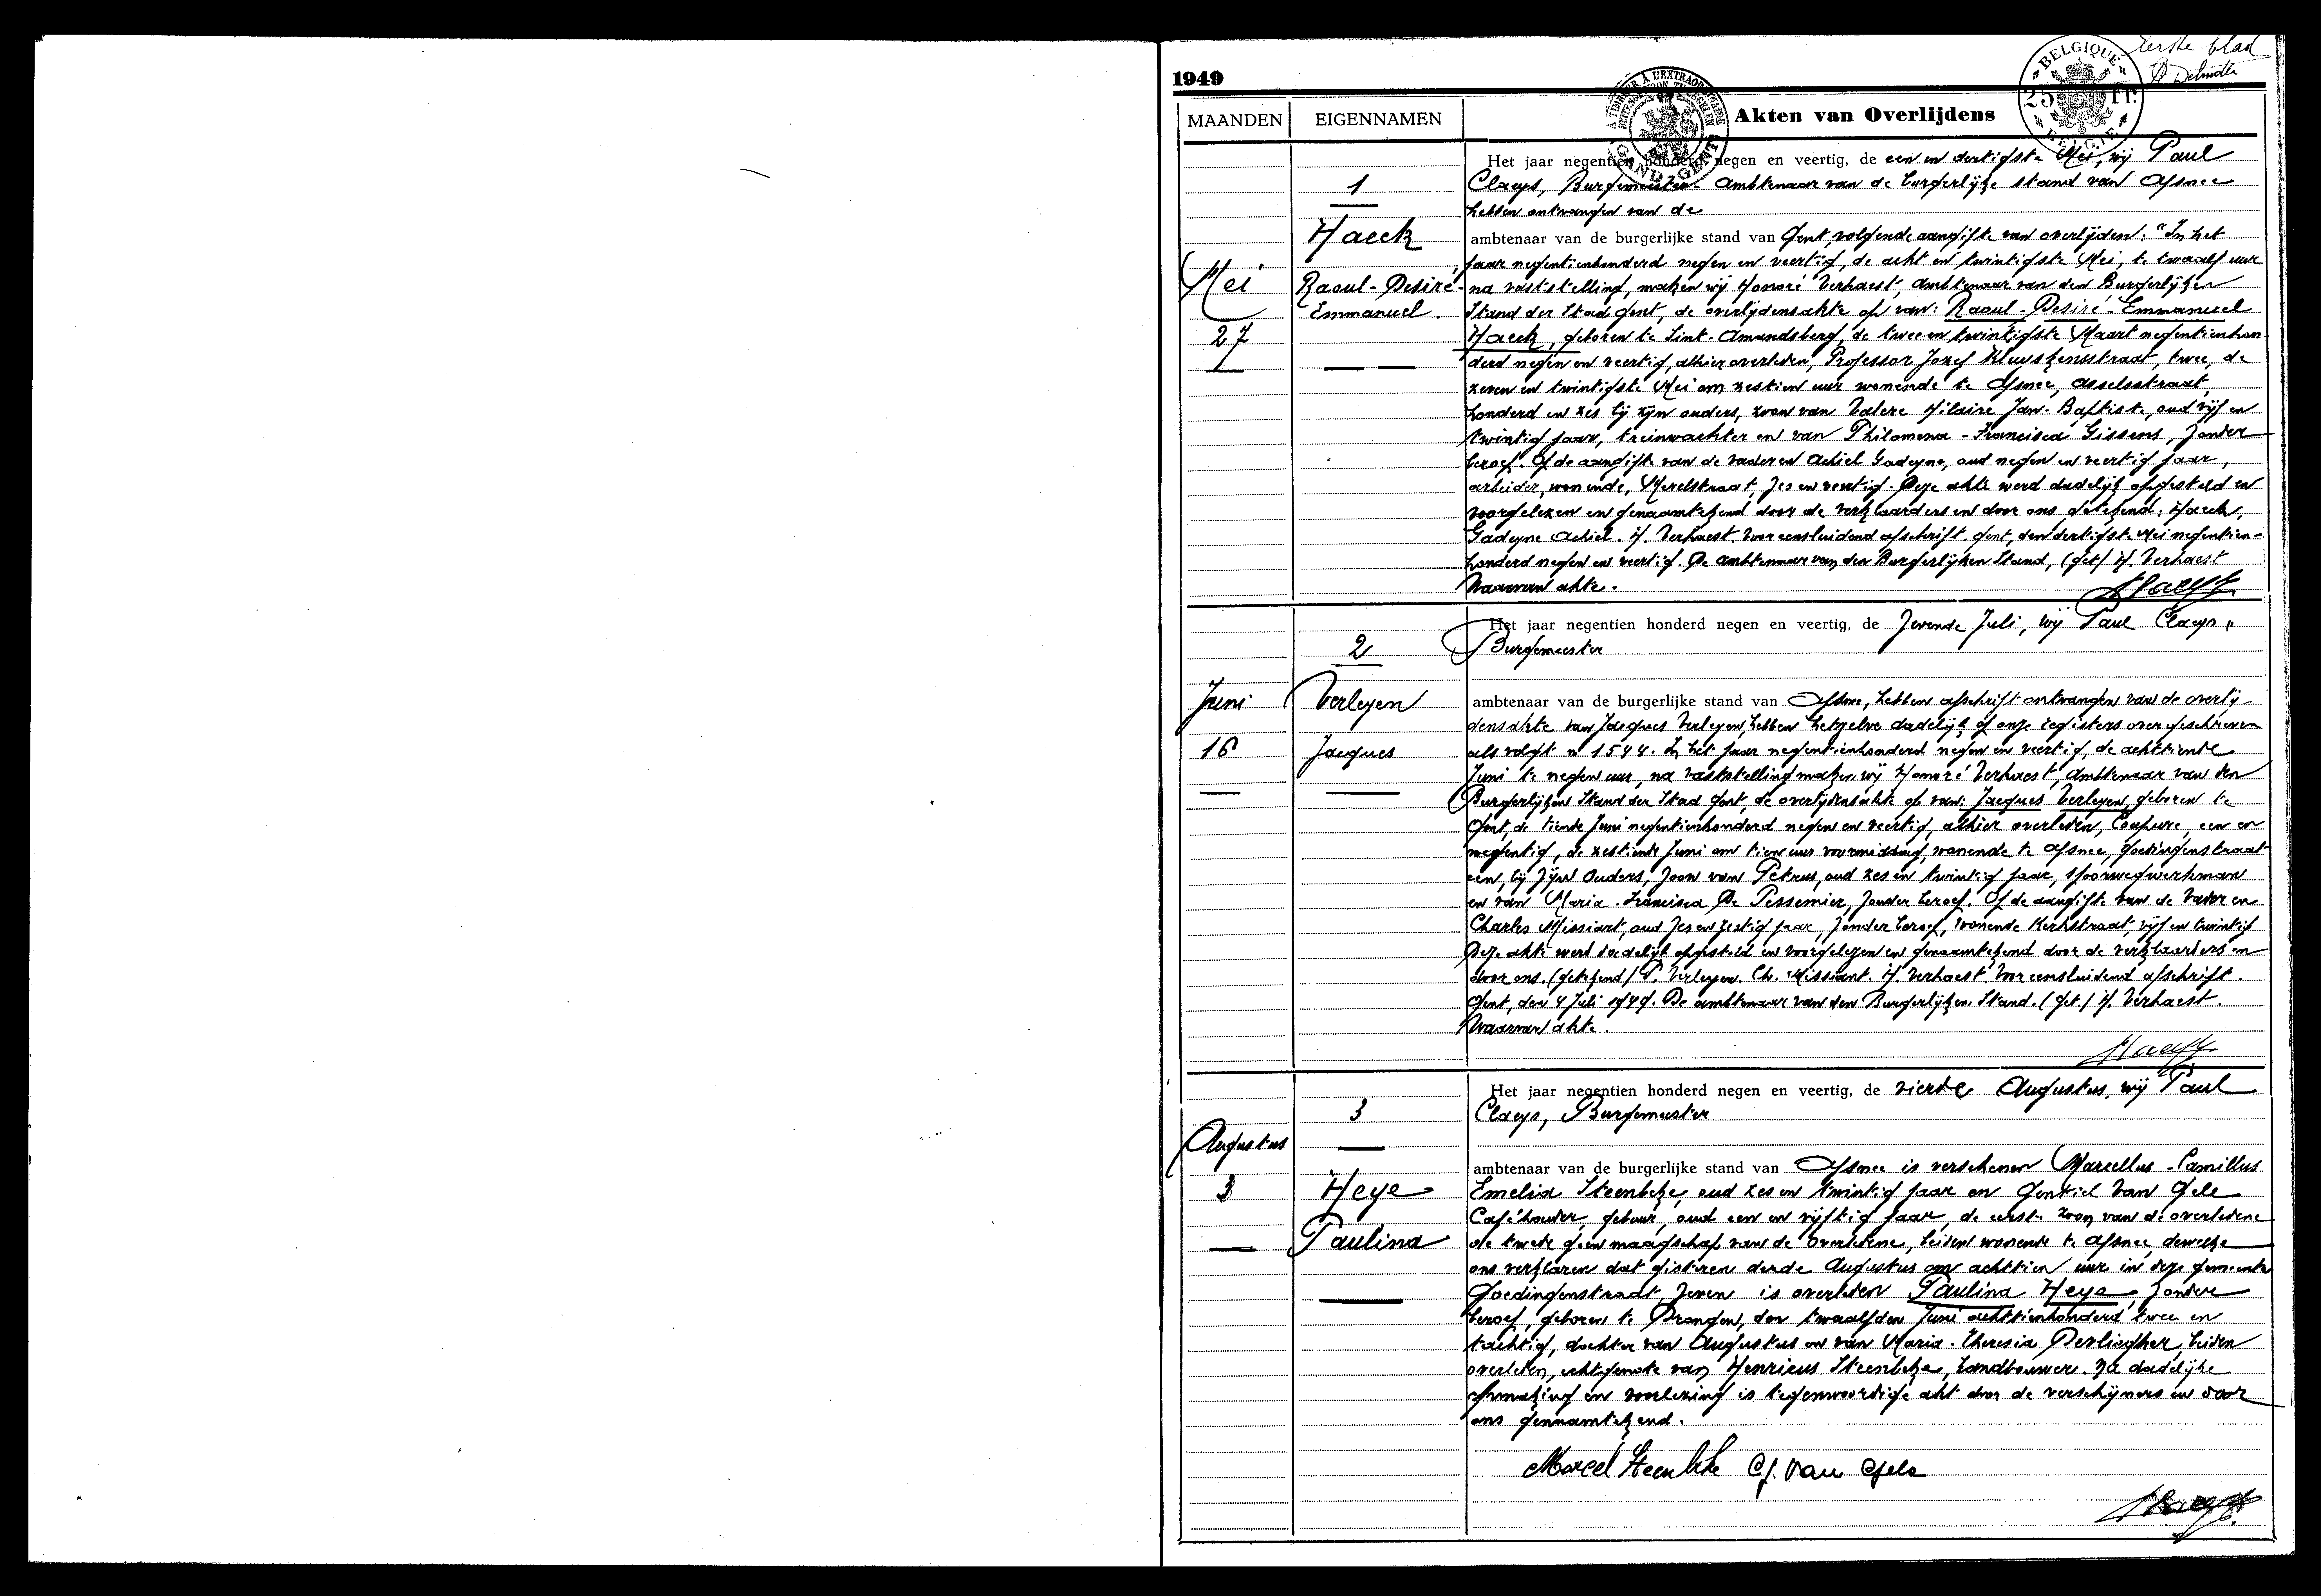 Eerste blad
1949
BELGIQUE
25 Fr.
BELGIE
GAND-GENT
MAANDEN EIGENNAMEN Akten van Overlijdens
1
Haeck
Mei
Raoul-Desiré-
Emmanuel.
27
Het jaar negentien honderd negen en veertig, de een en dertigste Mei, wij Paul
Claeys, Burgemeester Ambtenaar van de burgerlijke stand van Afsnee
hebben ontvangen van de
ambtenaar van de burgerlijke stand van Gent volgende aangifte van overlijden: "In het
jaar negentienhonderd negen en veertig, de acht en twintigste Mei, te twaalf uur
na vaststelling, maken wij Honoré Verhaest, Ambtenaar van den Burgerlijken
Stand der Stad Gent, de overlijdensakte op van: Raoul-Desiré-Emmanuel
Haeck, geboren te Sint-Amandsberg, de twee en twintigste Maart negentienhon
derd negen en veertig, alhier overleden, Professor Jozef Kluyskensstraat, twee, de
zeven en twintigste Mei om zestien uur wonende te Afsnee, Asselsstraat,
honderd en zes bij zijn ouders, zoon van Valere Hilaire Jan-Baptiste, oud vijf en
twintig jaar, treinwachter en van Philomena-Francisca Gissens, zonder
beroep. Op de aangifte van de vader en Achiel Gadeyne, oud negen en veertig jaar,
arbeider, wonende, Merelstraat, zes en veertig. Deze akte werd dadelijk opgesteld en
voorgelezen en genaamtekend door de verklaarders en door ons getekend: Haeck,
Gadeyne Achiel. H. Verhaest. Voor eensluidend afschrift. Gent, den dertigste Mei negentien-
honderd negen en veertig. De Ambtenaar van den Burgerlijken Stand, (get) H. Verhaest
Waarvan akte.
2
Juni Verleyen
16 Jacques
Het jaar negentien honderd negen en veertig, de zevende Juli, wij Paul Claeys,
Burgemeester
ambtenaar van de burgerlijke stand van Afsnee, hebben afschrift ontvangen van de overlij-
densakte van Jacques Verleyen, hebben hetzelve dadelijk op onze registers overgeschreven
als volgt n 1544. In het jaar negentienhonderd negen en veertig, de achttiende
Juni te negen uur, na vaststelling maken wij Honoré Verhaest, Ambtenaar van den
Burgerlijken Stand der Stad Gent, de overlijdensakte op van: Jacques Verleyen, geboren te
Gent, de tiende Juni negentienhonderd negen en veertig, alhier overleden, Coupure, een en
negentig, de zestiende Juni om tien uur voormiddag, wonende te Afsnee, Goedingenstraat
een, bij zijn Ouders, zoon van Petrus, oud zes en twintig jaar, spoorwegwerkman
en van Maria-Francisca De Pessemier, zonder beroep. Op de aangifte van de Vader en
Charles Missiart, oud zes en zestig jaar, zonder beroep, wonende Kerkstraat, vijf en twintig
Deze akte werd dadelijk opgesteld en voorgelezen en genaamtekend door de verklaarders en
door ons. (getekend) P. Verleyen. Ch. Missiant. H. Verhaest. Voor eensluidend afschrift.
Gent, den 4 Juli 1949. De ambtenaar van den Burgerlijken Stand. (get.) H. Verhaest.
Waarvan akte.
3
Augustus
3 Heye
Paulina
Het jaar negentien honderd negen en veertig, de vierde Augustus, wij Paul
Claeys, Burgemeester
ambtenaar van de burgerlijke stand van Afsnee is verschenen Marcellus-Camillus
Emelia Steenbeke, oud zes en twintig jaar en Gentiel Van Gele
Caféhouder, gebuur, oud een en vijftig jaar, de eerste zoon van de overledene
de twede geen maagschap van de overledene, beiden wonende te Afsnee, dewelke
ons verklaren dat gisteren derde Augustus om achttien uur in deze gemeente
Goedingenstraat, zeven is overleden Paulina Heye, zonder
beroep, geboren te Drongen, den twaalfden Juni achttienhonderd twee en
tachtig, dochter van Augustus en van Maria-Theresia Devliegher, beiden
overleden, echtgenote van Henricus Steenbeke, Landbouwer. Na dadelijke
opmaking en voorlezing is tegenwoordige akt door de verschijners en door
ons genaamtekend.
Marcel Steenbeke G. Van Gele